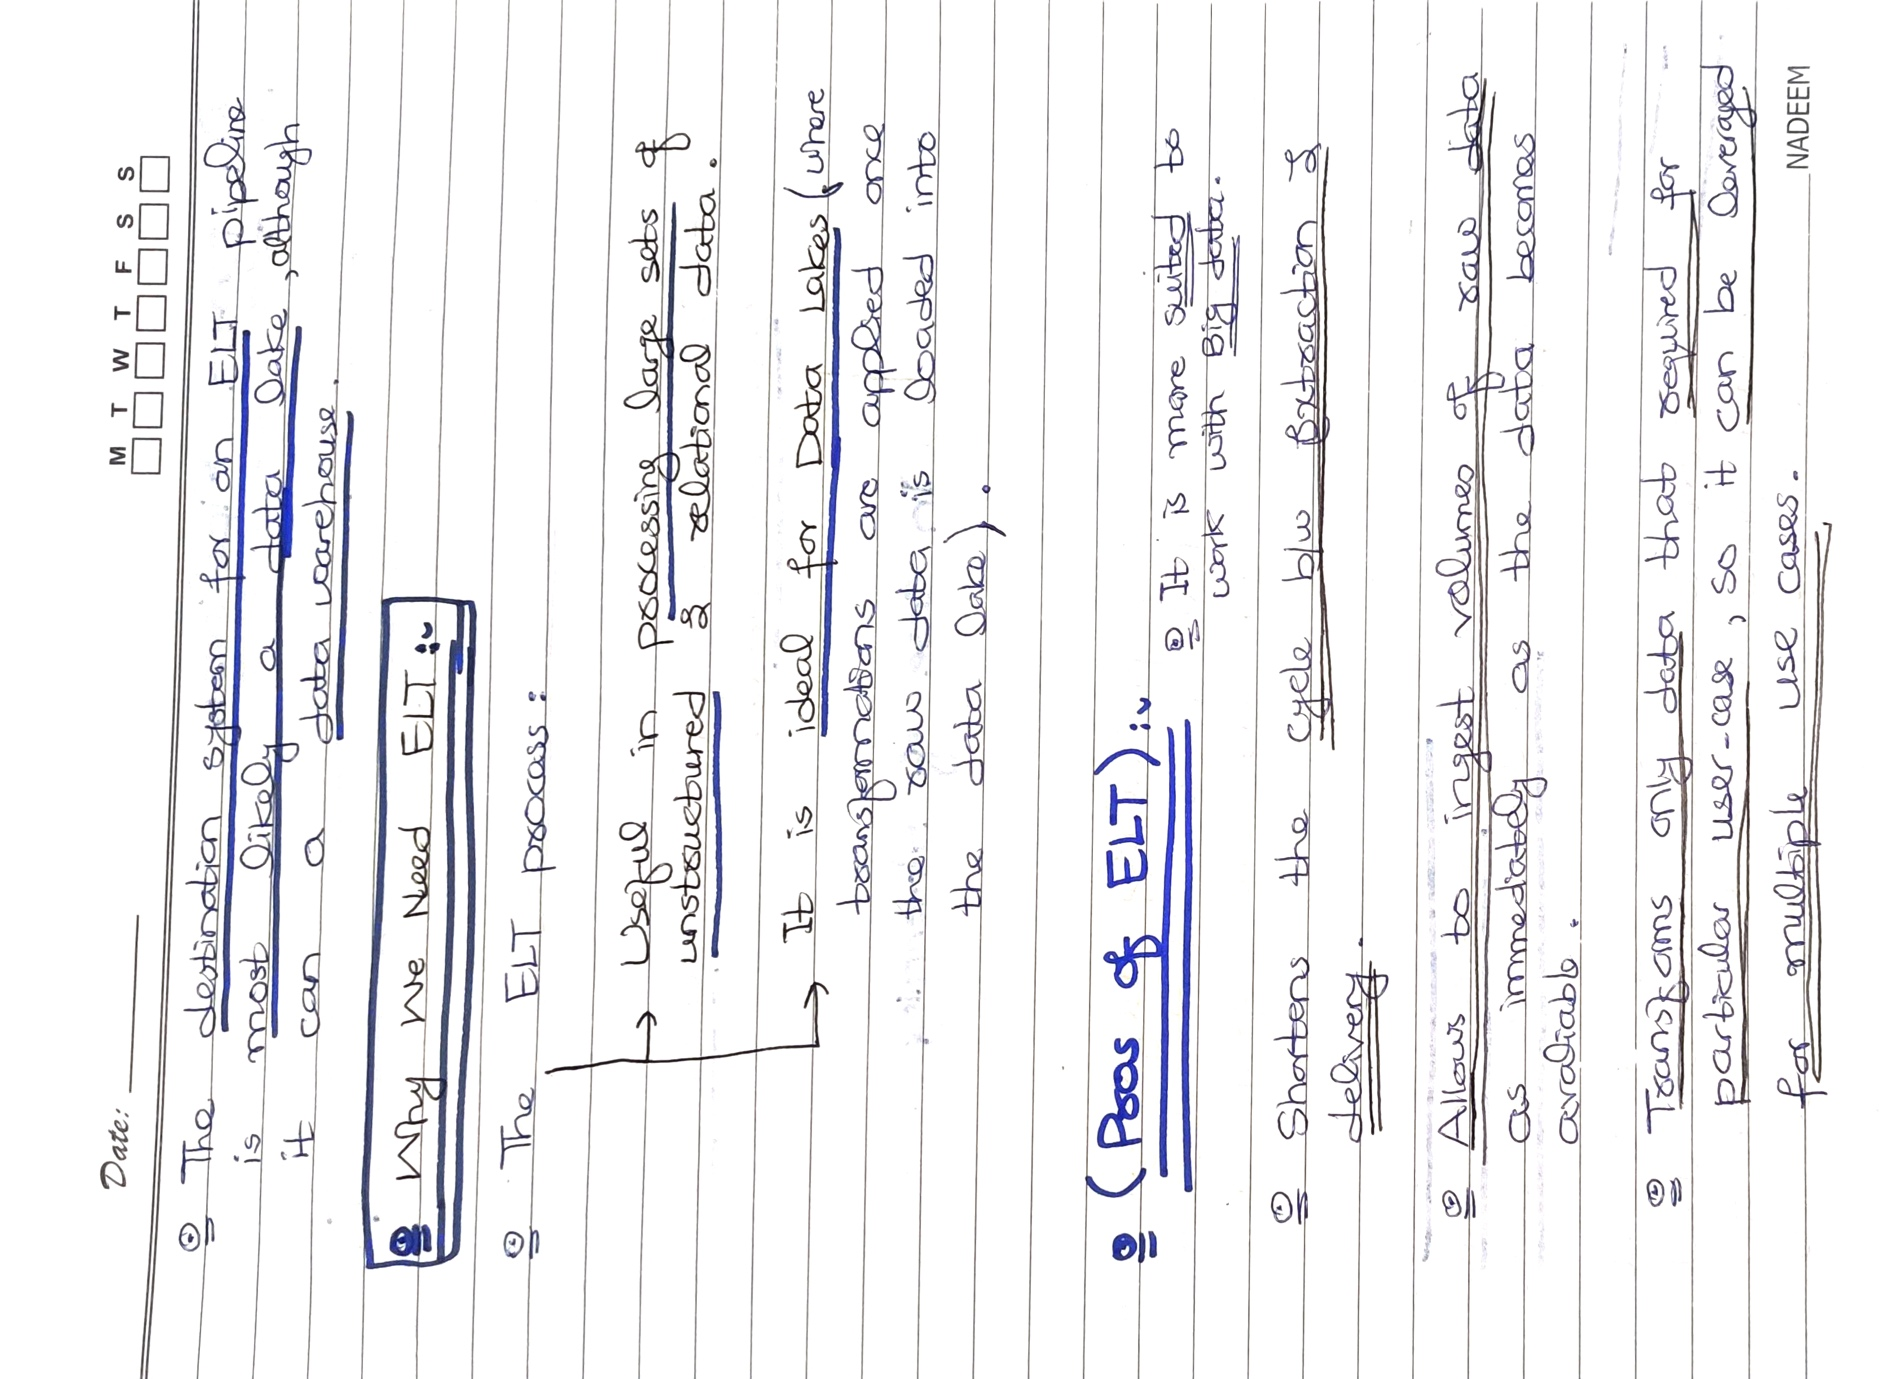 Date:
M T W T F S S
The destination system for an ELT pipeline
is most likely a data lake, although
it can a data warehouse.
Why We Need ELT:
The ELT process:
Useful in processing large sets of
unstructured & relational data.
It is ideal for Data Lakes (where
transformations are applied once
the raw data is loaded into
the data lake).
(Pros of ELT):
It is more suited to
work with Big data.
Shortens the cycle b/w Extraction &
delivery.
Allows to ingest volumes of raw data
as immediately as the data becomes
available.
Transforms only data that required for
particular user-case, so it can be leveraged
for multiple use cases.
NADEEM